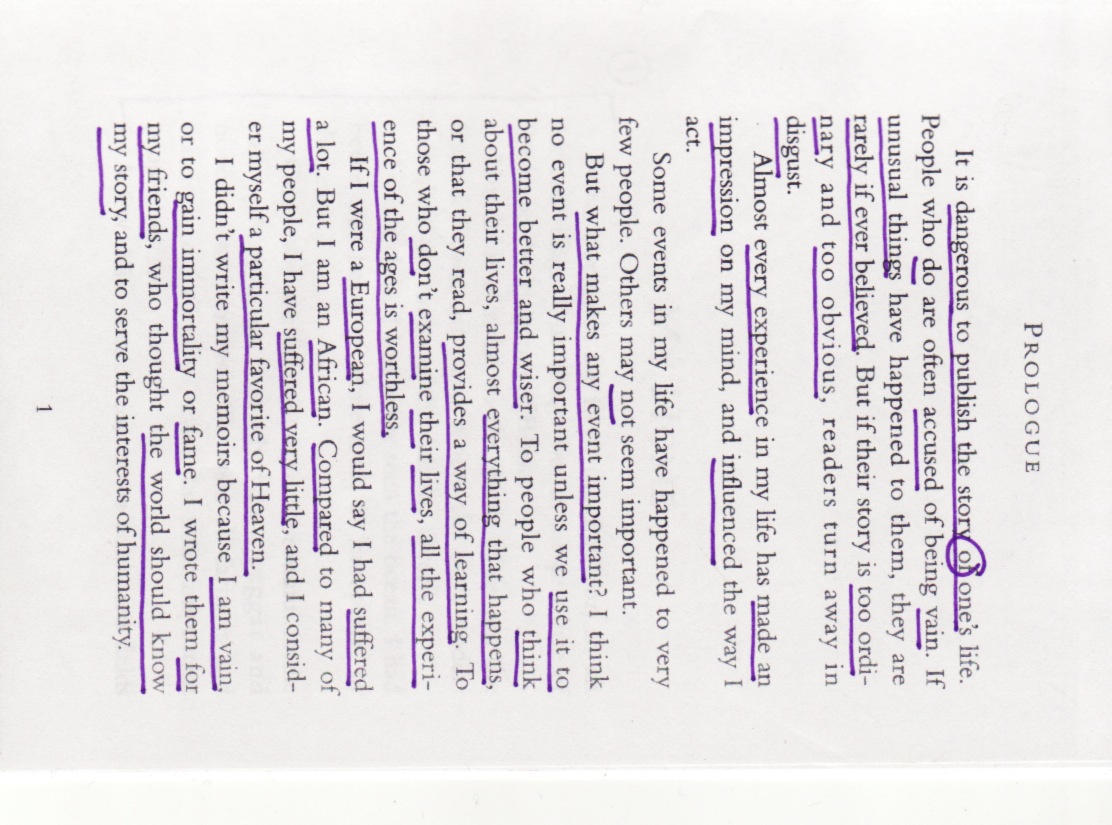 PROLOGUE
It is dangerous to publish the story of one's life.
People who do are often accused of being vain. If
unusual things have happened to them, they are
rarely if ever believed. But if their story is too ordi-
nary and too obvious, readers turn away in
disgust.
Almost every experience in my life has made an
impression on my mind, and influenced the way I
act.
Some events in my life have happened to very
few people. Others may not seem important.
But what makes any event important? I think
no event is really important unless we use it to
become better and wiser. To people who think
about their lives, almost everything that happens,
or that they read, provides a way of learning. To
those who don't examine their lives, all the experi-
ence of the ages is worthless.
If I were a European, I would say I had suffered
a lot. But I am an African. Compared to many of
my people, I have suffered very little, and I consid-
er myself a particular favorite of Heaven.
I didn't write my memoirs because I am vain,
or to gain immortality or fame. I wrote them for
my friends, who thought the world should know
my story, and to serve the interests of humanity.
1